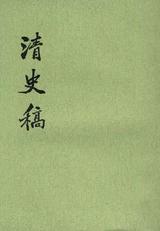 清史稿